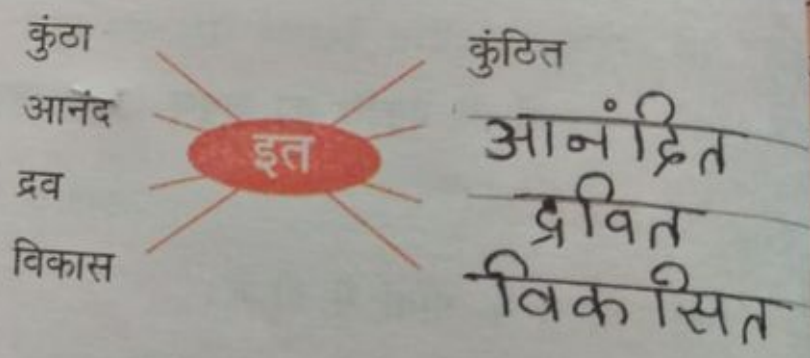 कुंठा
आनंद
द्रव
विकास
इत
कुंठित
आनंद्रित
द्रवित
विकसित